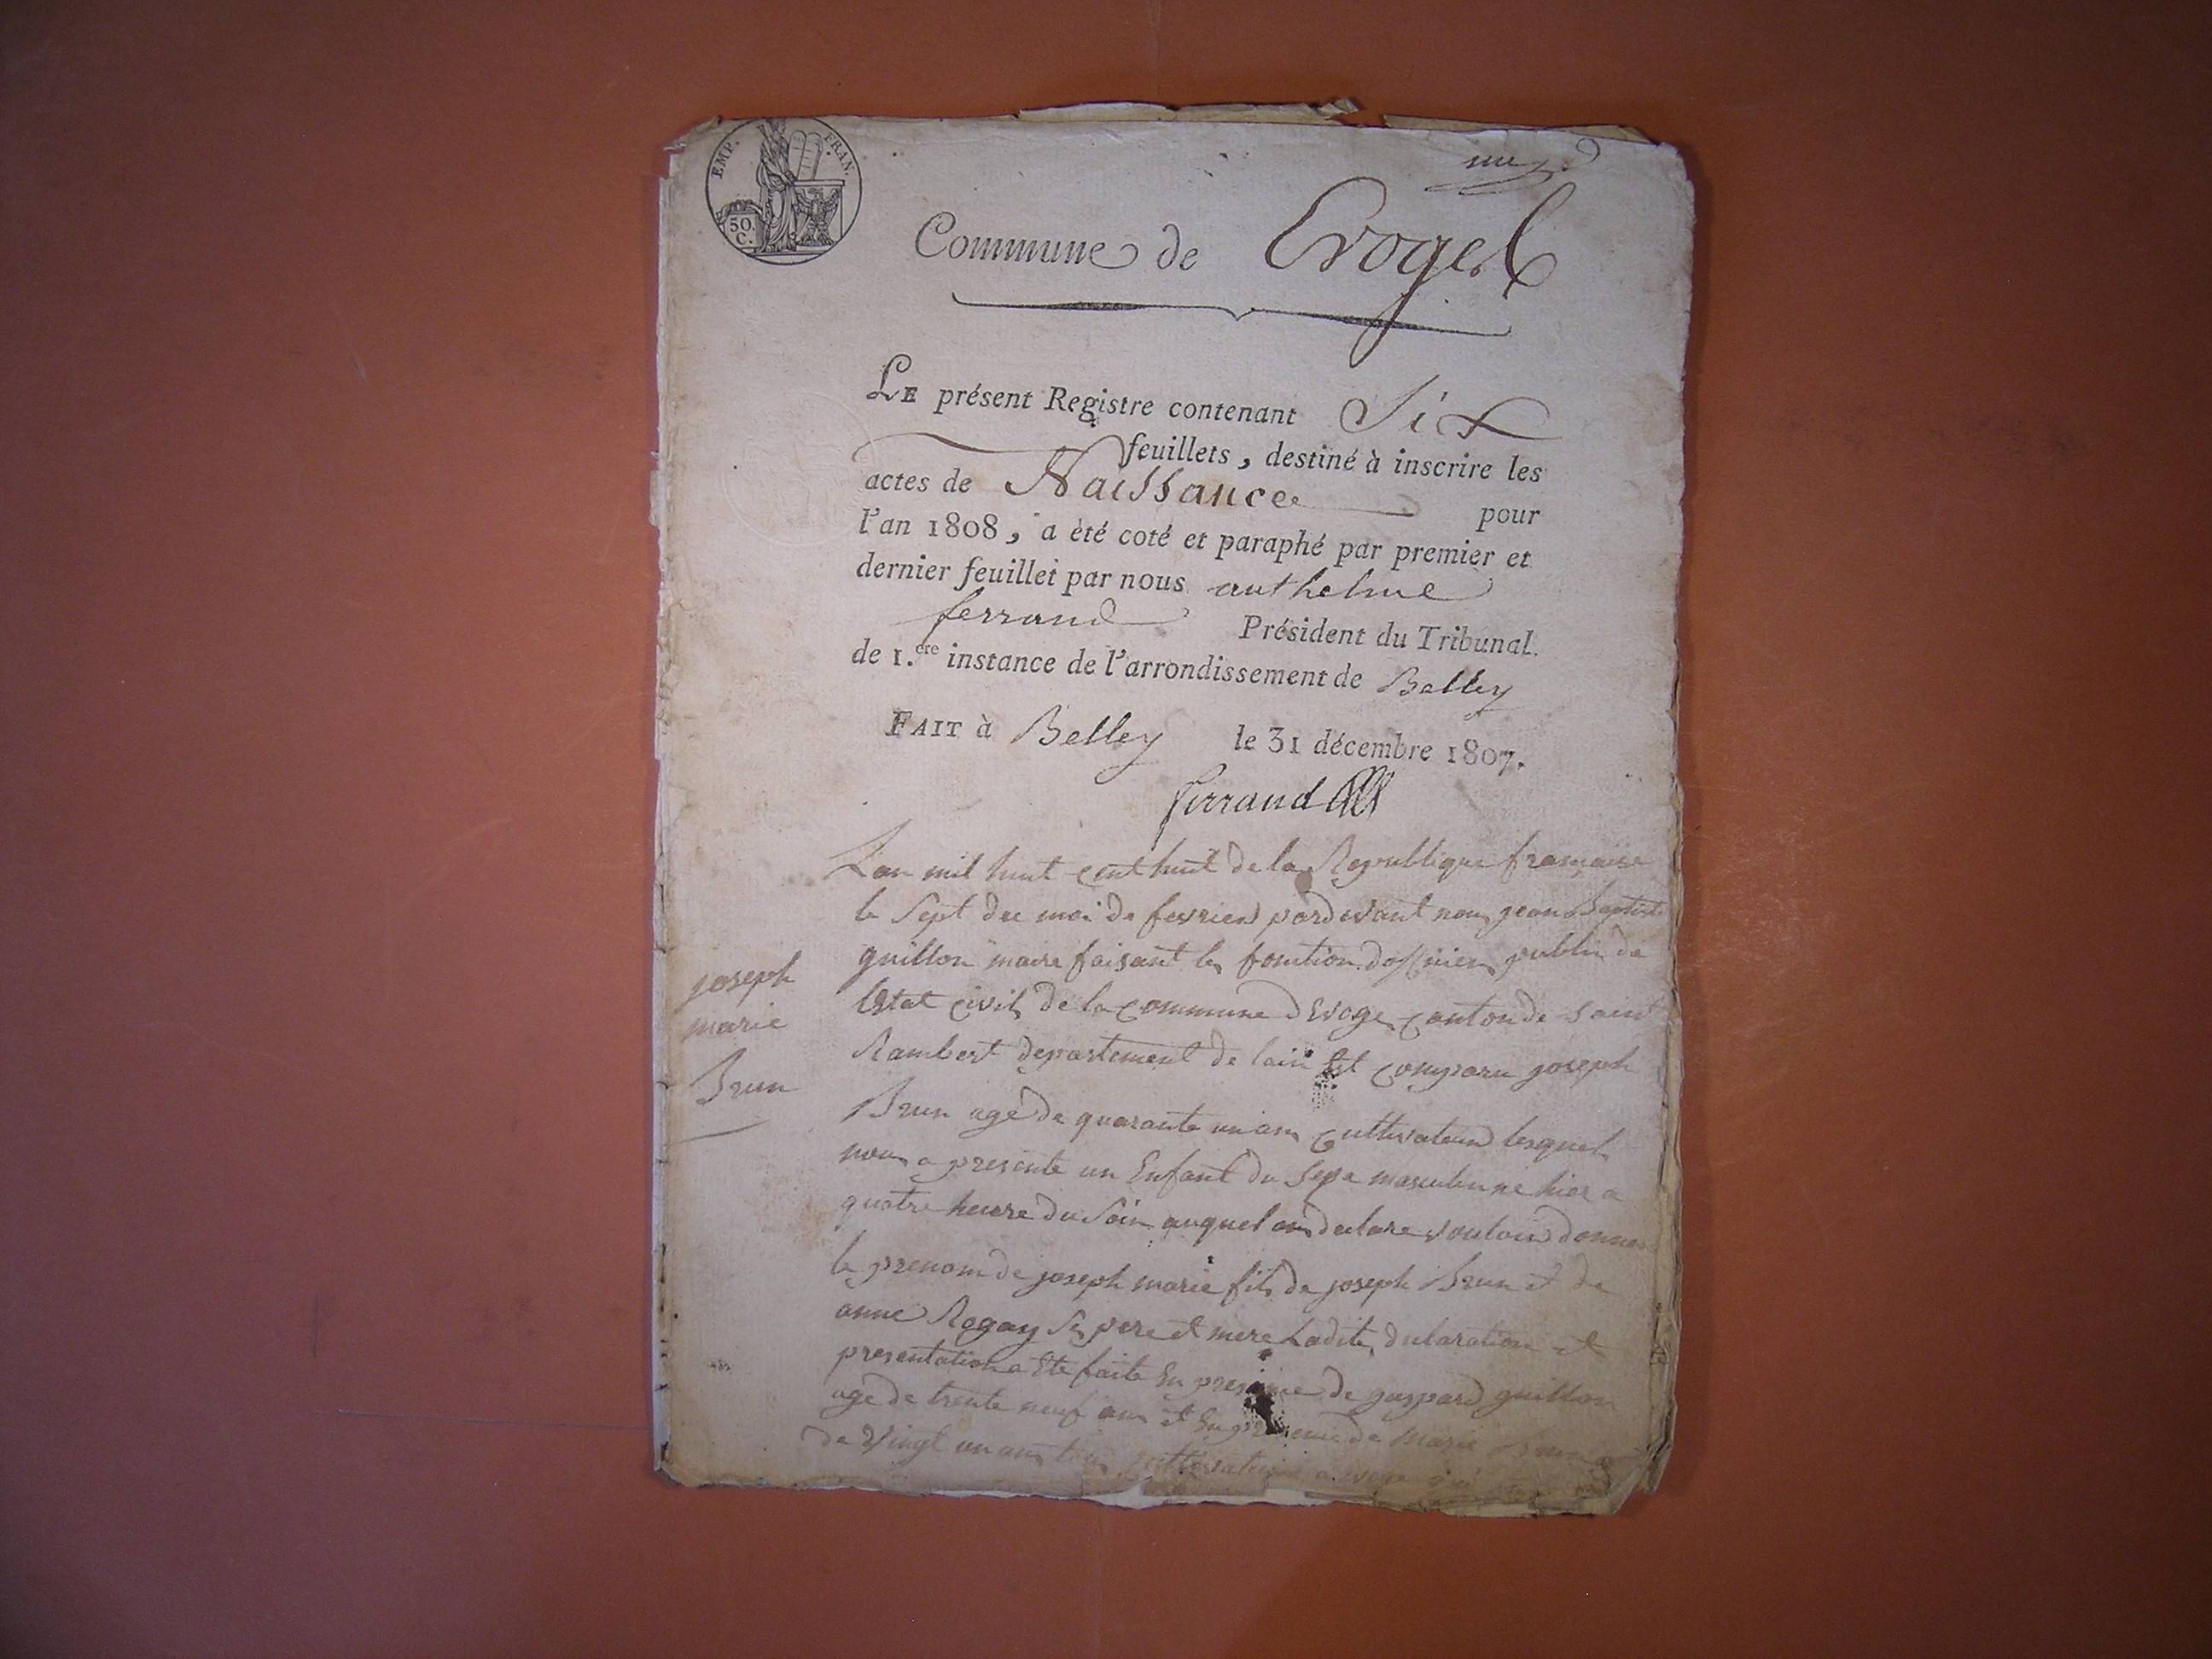 EMP. FRAN.
50.
C.
Commune de Evoges
LE présent Registre contenant Six
feuillets, destiné à inscrire les
actes de Naissance pour
l'an 1808, a été coté et paraphé par premier et
dernier feuillet par nous anthelme
ferrand Président du Tribunal
de 1.ere instance de l'arrondissement de Belley
FAIT à Belley le 31 décembre 1807.
ferrand
Lan mil huit cent huit de la Republique francaise
le Sept du moi de fevrier pardevant nous jean Baptiste
guillon maire faisant les fonction dofficier public de
lEtat civil de la commune dEvoge canton de saint
Rambert departement de lain Est comparu joseph
joseph
marie
Brun
Brun agé de quarante un ans cultivateur lesquel
nous a presente un Enfant du Sexe masculin ne hier a
quatre heure du Soir auquel on declare vouloir donner
le prenom de joseph marie fils de joseph Brun et de
anne Rogay Ses pere et mere Ladite declaration et
presentation a Ete faite En presence de gaspard guillon
age de trente neuf ans et En presence de marie Brun
de vingt un ans tous cultivateur a